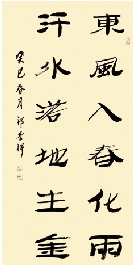 東風入春化雨
汗水落地生金
癸巳春月